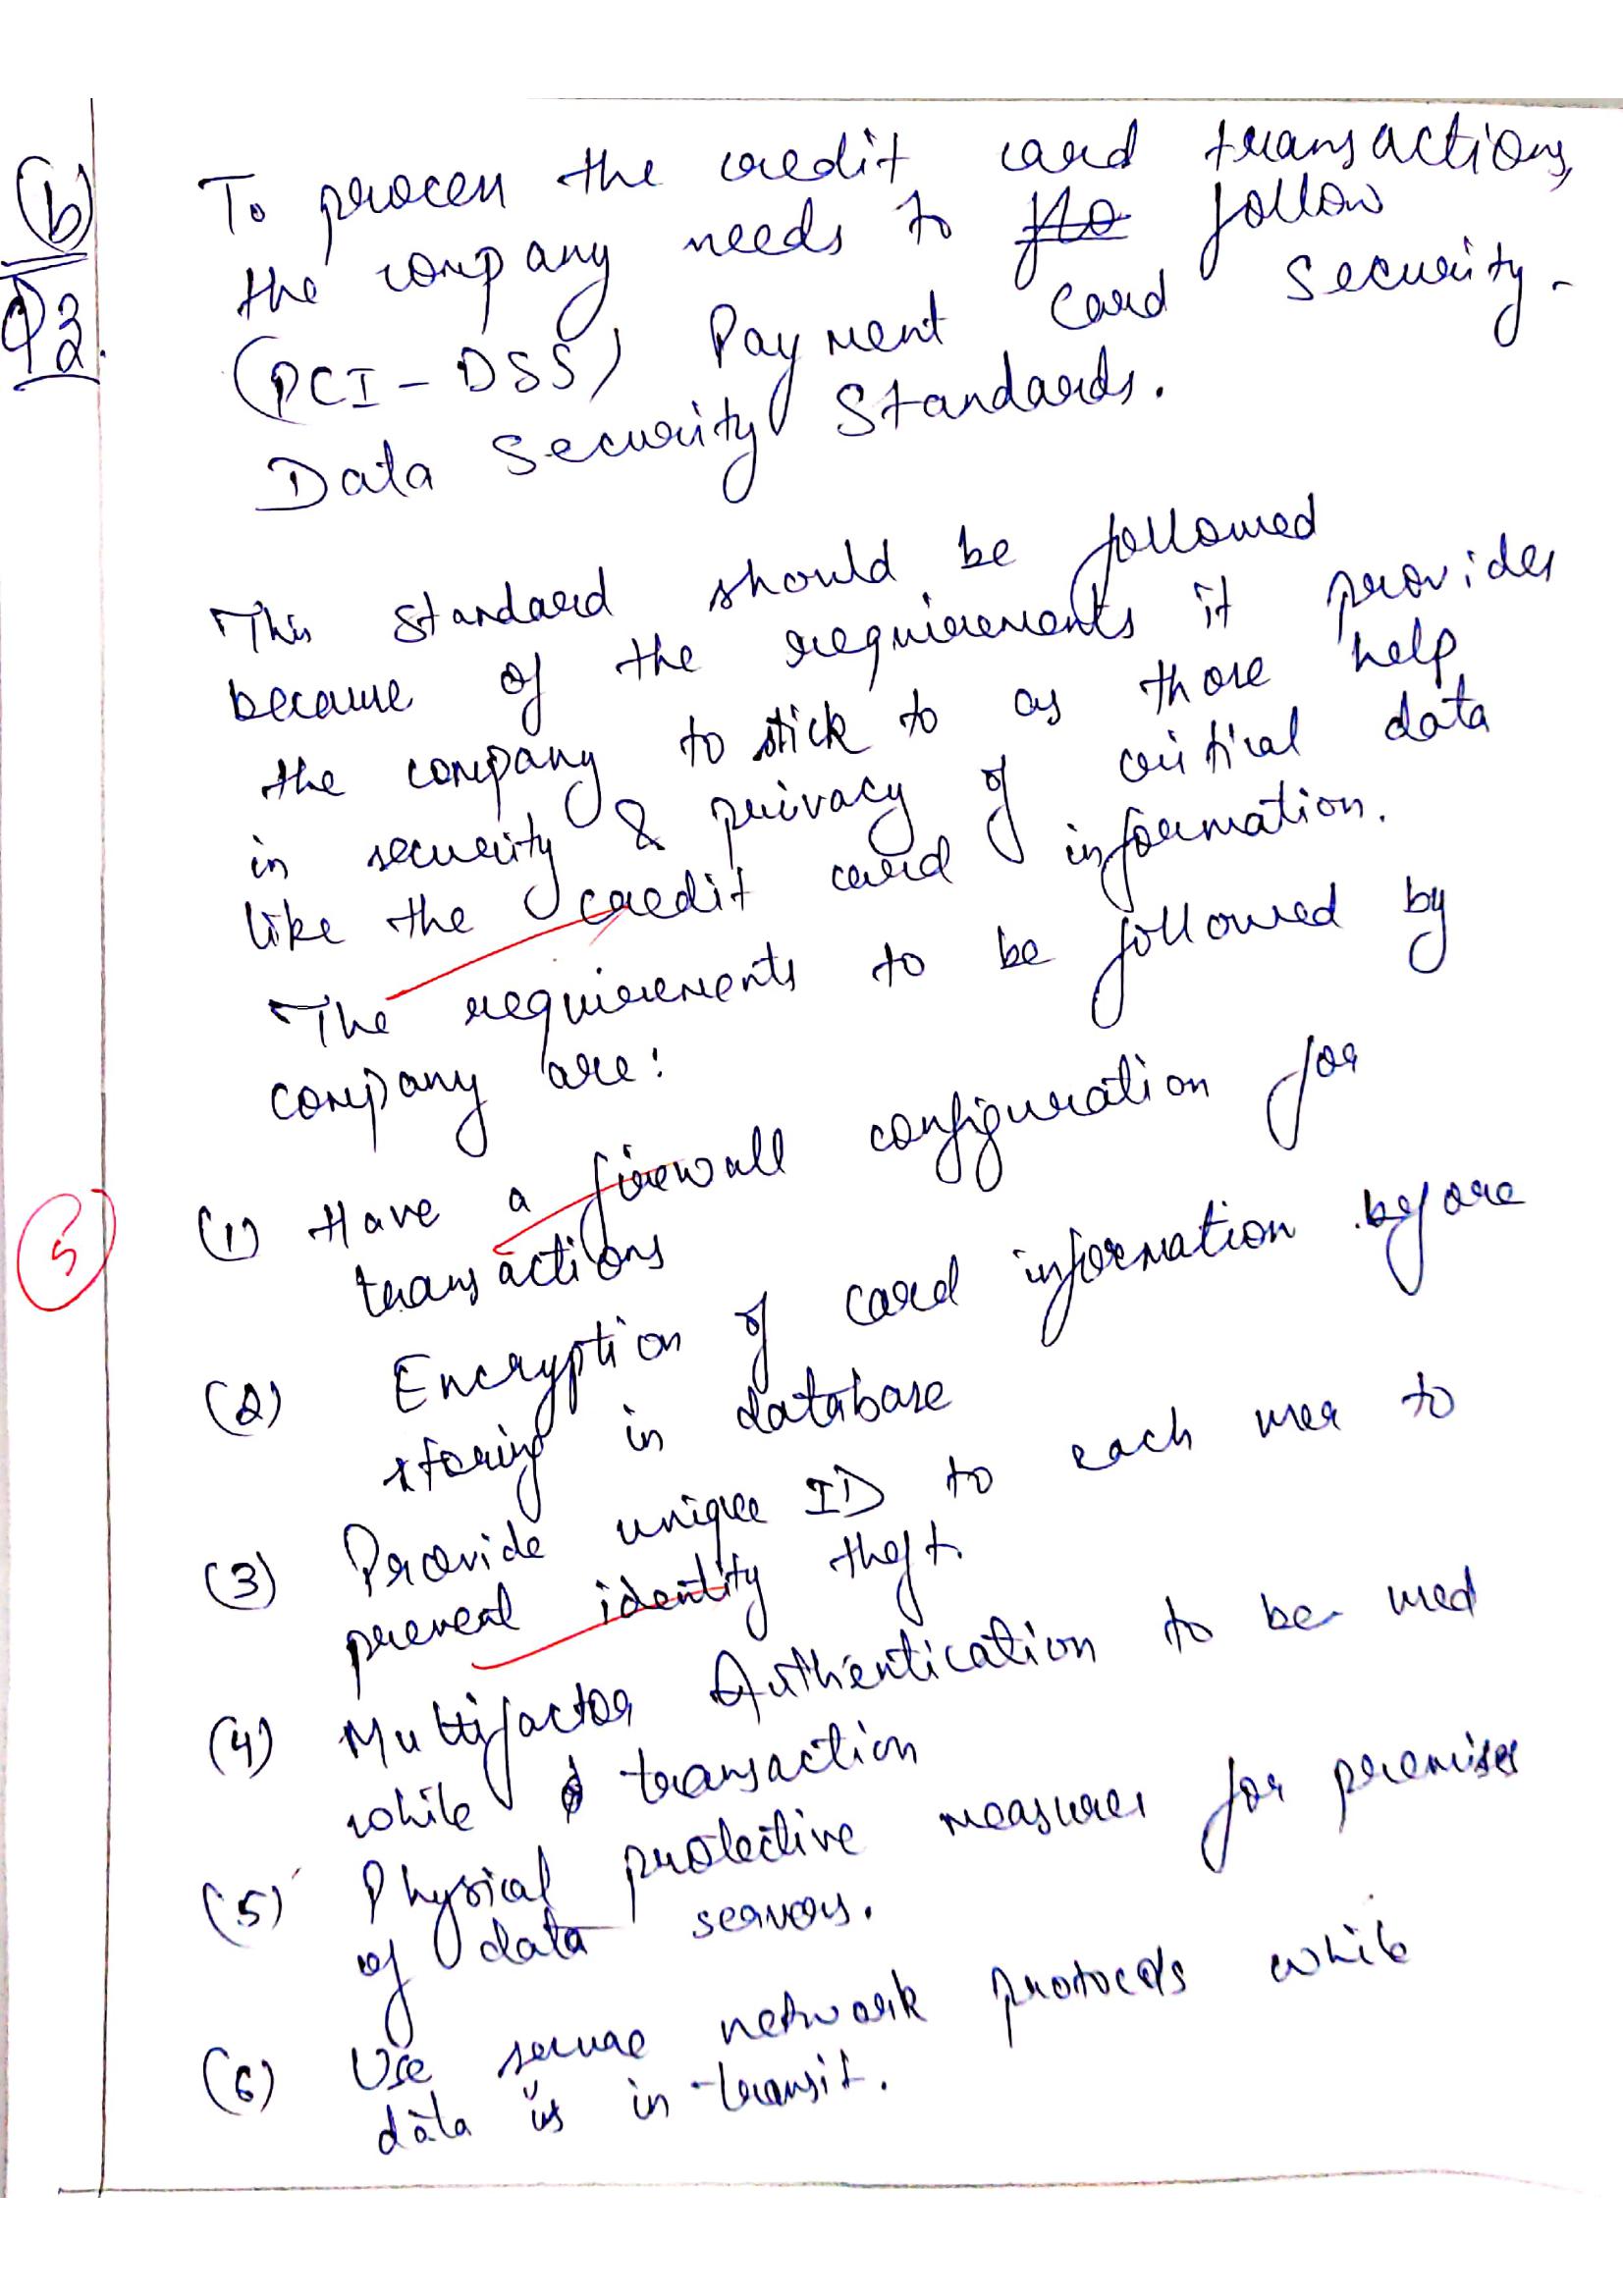 (b)
Q2.
To process the credit card transactions,
the company needs to flo follow
(PCI-DSS) Payment Card Security-
Data Security Standards.
This standard should be followed
because of the requirements it provides
the company to stick to as those help
in security & privacy of critical data
like the credit card information.
The requirements to be followed by
company are:
(1) Have a firewall configuration for
transactions
5
(2) Encryption of card information before
storing in database
(3) Provide unique ID to each user to
prevent identity theft.
(4) Multifactor Authentication to be used
while transaction
(5) Physical protective measures for premises
of data servers.
(6) Use secure network protocols while
data is in-transit.